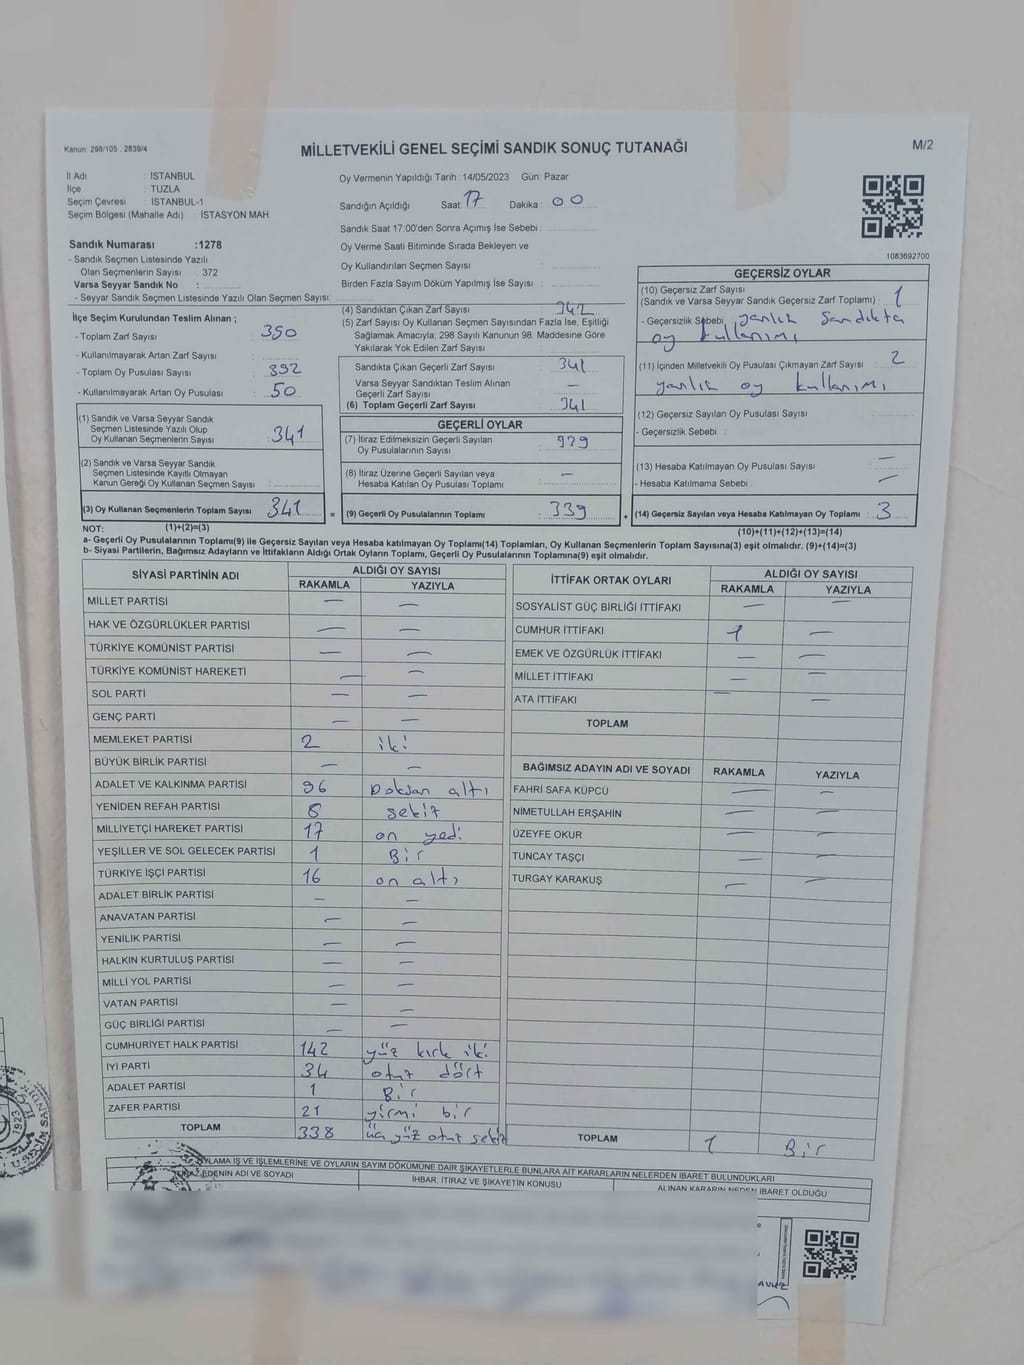 Kanun: 298/105 . 2839/4
MİLLETVEKİLİ GENEL SEÇİMİ SANDIK SONUÇ TUTANAĞI
M/2
İl Adı : İSTANBUL
İlçe : TUZLA
Seçim Çevresi : İSTANBUL-1
Seçim Bölgesi (Mahalle Adı) : İSTASYON MAH.
Oy Vermenin Yapıldığı Tarih : 14/05/2023 Gün: Pazar
Sandığın Açıldığı Saat: 17 Dakika : 00
Sandık Saat 17:00'den Sonra Açımış İse Sebebi :
Oy Verme Saati Bitiminde Sırada Bekleyen ve
Oy Kullandırılan Seçmen Sayısı :
Birden Fazla Sayım Döküm Yapılmış İse Sayısı :
1083692700
Sandık Numarası :1278
- Sandık Seçmen Listesinde Yazılı
Olan Seçmenlerin Sayısı : 372
Varsa Seyyar Sandık No :
- Seyyar Sandık Seçmen Listesinde Yazılı Olan Seçmen Sayısı:
İlçe Seçim Kurulundan Teslim Alınan ;
- Toplam Zarf Sayısı : 350
- Kullanılmayarak Artan Zarf Sayısı :
- Toplam Oy Pusulası Sayısı : 392
- Kullanılmayarak Artan Oy Pusulası : 50
(1) Sandık ve Varsa Seyyar Sandık
Seçmen Listesinde Yazılı Olup
Oy Kullanan Seçmenlerin Sayısı : 341
(2) Sandık ve Varsa Seyyar Sandık
Seçmen Listesinde Kayıtlı Olmayan
Kanun Gereği Oy Kullanan Seçmen Sayısı :
(3) Oy Kullanan Seçmenlerin Toplam Sayısı : 341
(1)+(2)=(3)
(4) Sandıktan Çıkan Zarf Sayısı : 342
(5) Zarf Sayısı Oy Kullanan Seçmen Sayısından Fazla İse, Eşitliği
Sağlamak Amacıyla, 298 Sayılı Kanunun 98. Maddesine Göre
Yakılarak Yok Edilen Zarf Sayısı :
Sandıkta Çıkan Geçerli Zarf Sayısı : 341
Varsa Seyyar Sandıktan Teslim Alınan
Geçerli Zarf Sayısı : —
(6) Toplam Geçerli Zarf Sayısı : 341
GEÇERLİ OYLAR
(7) İtiraz Edilmeksizin Geçerli Sayılan
Oy Pusulalarının Sayısı :
(8) İtiraz Üzerine Geçerli Sayılan veya
Hesaba Katılan Oy Pusulası Toplamı : —
= (9) Geçerli Oy Pusulalarının Toplamı : 339 +
GEÇERSİZ OYLAR
(10) Geçersiz Zarf Sayısı
(Sandık ve Varsa Seyyar Sandık Geçersiz Zarf Toplamı) : 1
- Geçersizlik Sebebi : yanlık Sandıkta
oy kullanımı
(11) İçinden Milletvekili Oy Pusulası Çıkmayan Zarf Sayısı : 2
yanlık oy kullanımı
(12) Geçersiz Sayılan Oy Pusulası Sayısı :
- Geçersizlik Sebebi :
(13) Hesaba Katılmayan Oy Pusulası Sayısı : —
- Hesaba Katılmama Sebebi : —
(14) Geçersiz Sayılan veya Hesaba Katılmayan Oy Toplamı : 3
(10)+(11)+(12)+(13)=(14)
NOT:
a- Geçerli Oy Pusulalarının Toplamı(9) ile Geçersiz Sayılan veya Hesaba katılmayan Oy Toplamı(14) Toplamları, Oy Kullanan Seçmenlerin Toplam Sayısına(3) eşit olmalıdır. (9)+(14)=(3)
b- Siyasi Partilerin, Bağımsız Adayların ve İttifakların Aldığı Ortak Oyların Toplamı, Geçerli Oy Pusulalarının Toplamına(9) eşit olmalıdır.
SİYASİ PARTİNİN ADI
ALDIĞI OY SAYISI
RAKAMLA YAZIYLA
MİLLET PARTİSİ — —
HAK VE ÖZGÜRLÜKLER PARTİSİ — —
TÜRKİYE KOMÜNİST PARTİSİ — —
TÜRKİYE KOMÜNİST HAREKETİ — —
SOL PARTİ — —
GENÇ PARTİ — —
MEMLEKET PARTİSİ 2 iki
BÜYÜK BİRLİK PARTİSİ — —
ADALET VE KALKINMA PARTİSİ 96 Doksan altı
YENİDEN REFAH PARTİSİ 8 sekiz
MİLLİYETÇİ HAREKET PARTİSİ 17 on yedi
YEŞİLLER VE SOL GELECEK PARTİSİ 1 Bir
TÜRKİYE İŞÇİ PARTİSİ 16 on altı
ADALET BİRLİK PARTİSİ — —
ANAVATAN PARTİSİ — —
YENİLİK PARTİSİ — —
HALKIN KURTULUŞ PARTİSİ — —
MİLLİ YOL PARTİSİ — —
VATAN PARTİSİ — —
GÜÇ BİRLİĞİ PARTİSİ — —
CUMHURİYET HALK PARTİSİ 142 yüz kırk iki
İYİ PARTİ 34 otuz dört
ADALET PARTİSİ 1 Bir
ZAFER PARTİSİ 21 yirmi bir
TOPLAM 338 üç yüz otuz sekiz
İTTİFAK ORTAK OYLARI
ALDIĞI OY SAYISI
RAKAMLA YAZIYLA
SOSYALİST GÜÇ BİRLİĞİ İTTİFAKI — —
CUMHUR İTTİFAKI 1 —
EMEK VE ÖZGÜRLÜK İTTİFAKI — —
MİLLET İTTİFAKI — —
ATA İTTİFAKI — —
TOPLAM
BAĞIMSIZ ADAYIN ADI VE SOYADI RAKAMLA YAZIYLA
FAHRİ SAFA KÜPCÜ — —
NİMETULLAH ERŞAHİN — —
ÜZEYFE OKUR — —
TUNCAY TAŞÇI — —
TURGAY KARAKUŞ — —
TOPLAM 1 Bir
OYLAMA İŞ VE İŞLEMLERİNE VE OYLARIN SAYIM DÖKÜMÜNE DAİR ŞİKAYETLERLE BUNLARA AİT KARARLARIN NELERDEN İBARET BULUNDUKLARI
EDENİN ADI VE SOYADI
İHBAR, İTİRAZ VE ŞİKAYETİN KONUSU
ALINAN KARARIN NEDEN İBARET OLDUĞU